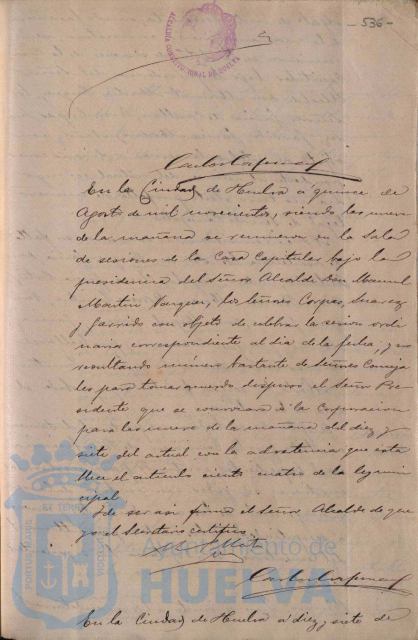 ALCALDIA CONSTITUCIONAL DE HUELVA
-536-
En la Ciudad de Huelva á quince de
Agosto de mil novecientos, siendo las nueve
de la mañana se reunieron en la Sala
de sesiones de la Casa Capitular bajo la
presidencia del Señor Alcalde Don Manuel
Martin Vazquez, los Señores Corpas, Suarez
y Garrido con objeto de celebrar la sesion ordi
naria correspondiente al dia de la fecha; y no
resultando número bastante de Señores Conceja
les para tomar acuerdo dispuso el Señor Pre
sidente que se convocara á la Corporacion
para las nueve de la mañana del diez y
siete del actual con la advertencia que esta
blece el articulo ciento cuatro de la ley muni
cipal.
Y de ser asi firma el Señor Alcalde de que
yo el Secretario certifico.
Ayuntamiento de
HUELVA
PORTUS MARIS
ET TERRE
CUSTODIA
En la Ciudad de Huelva á diez y siete de